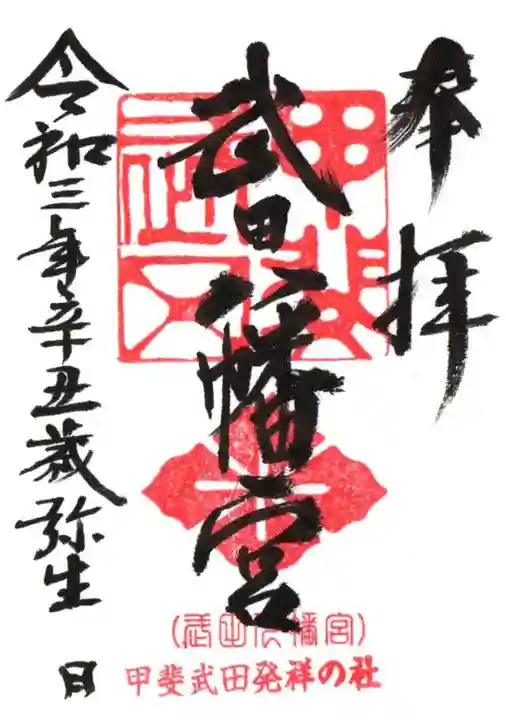 奉拝
武田八幡宮
令和三年辛丑歳弥生 日
(武田八幡宮)
甲斐武田発祥の社